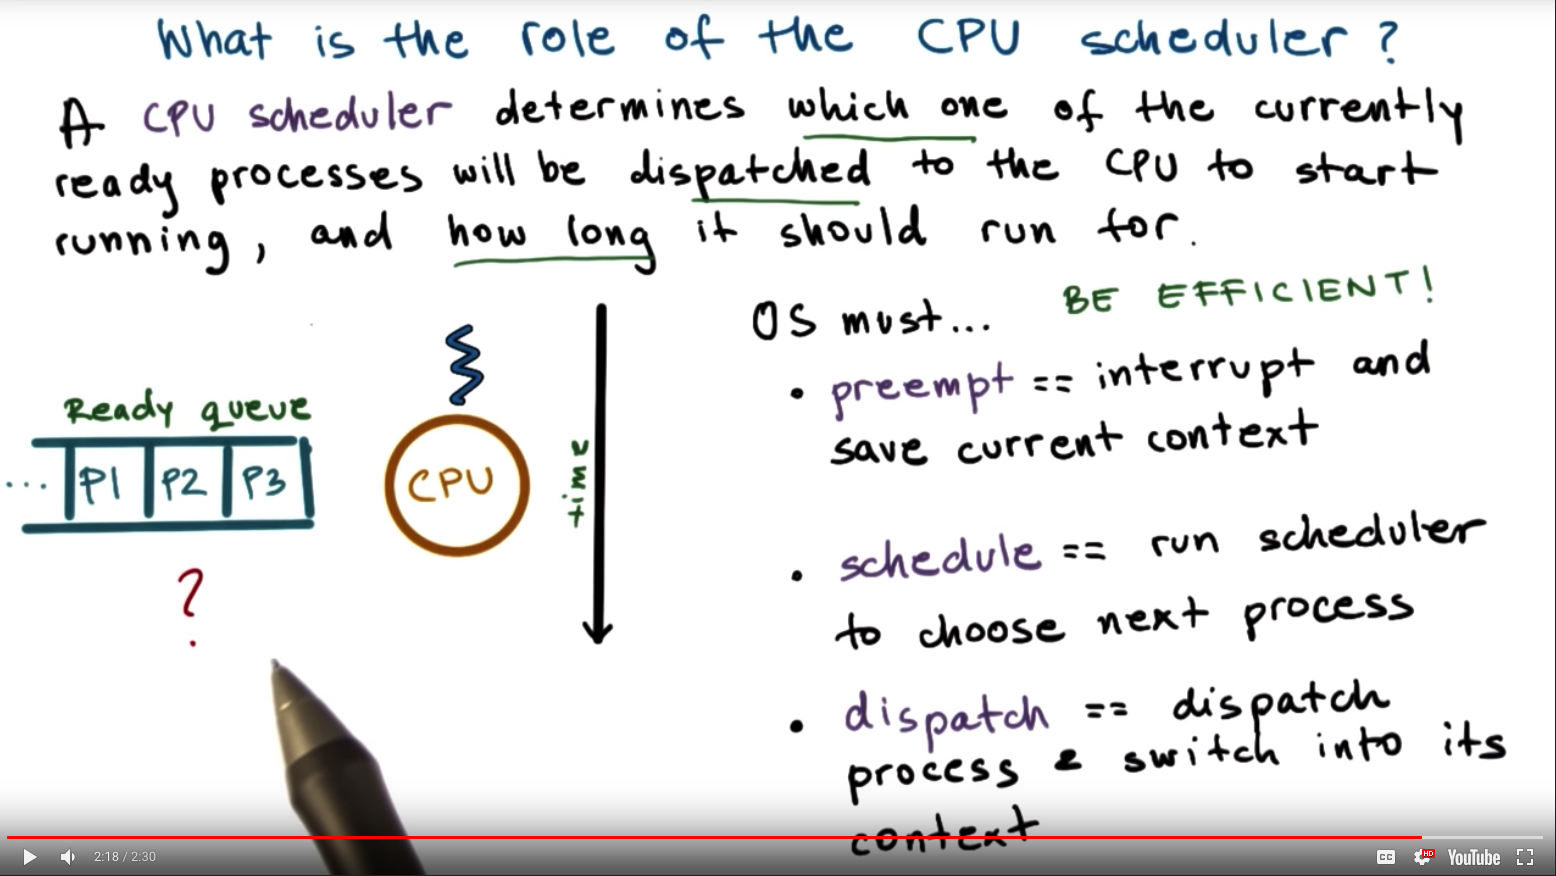 What is the role of the CPU scheduler?
A CPU scheduler determines which one of the currently
ready processes will be dispatched to the CPU to start
running, and how long it should run for.
BE EFFICIENT!
OS must...
• preempt == interrupt and
save current context
Ready queue
... P1 P2 P3
CPU
time
?
• schedule == run scheduler
to choose next process
• dispatch == dispatch
process & switch into its
context
2:18 / 2:30
CC
HD
YouTube